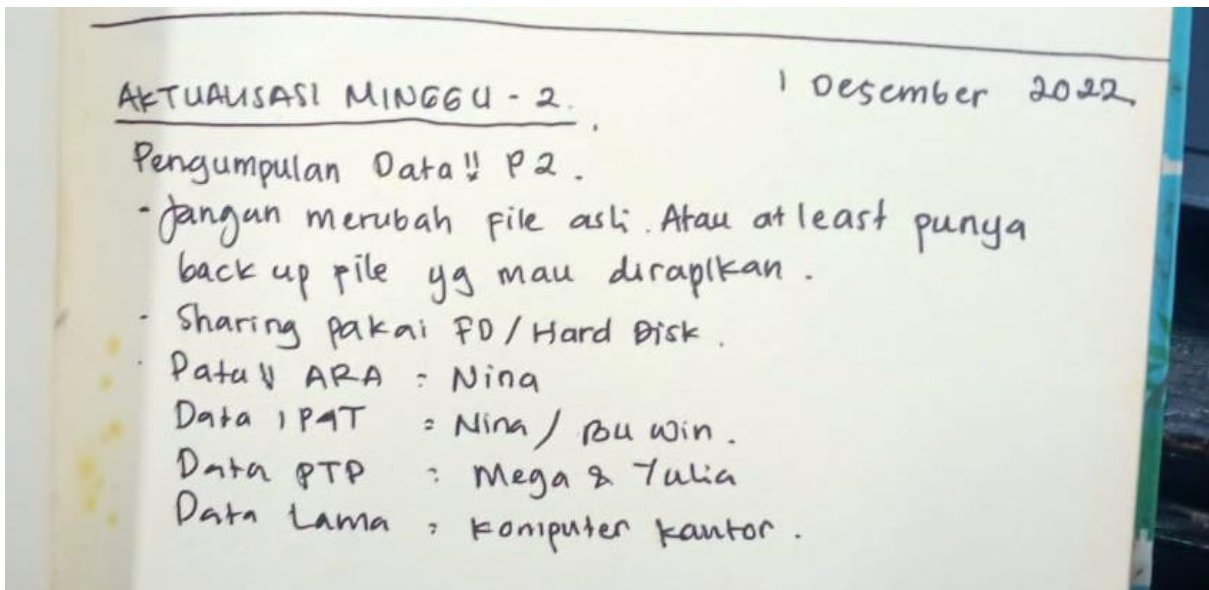 AKTUALISASI MINGGU - 2.
1 Desember 2022.
Pengumpulan Data!! P2.
- Jangan merubah file asli. Atau at least punya
back up file yg mau dirapikan.
- Sharing pakai FD / Hard Disk.
- Data!! ARA : Nina
Data IPAT : Nina / Bu Win.
Data PTP : Mega & Yulia
Data Lama : Komputer kantor.